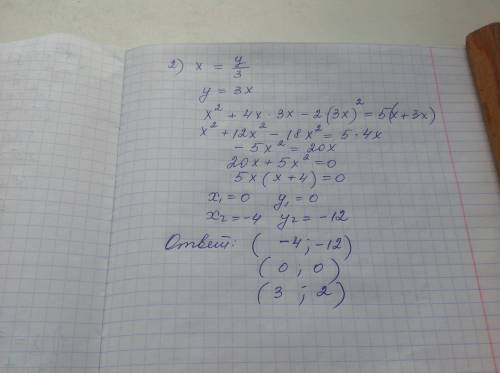 2) x = y/3
y = 3x
x² + 4x · 3x - 2(3x)² = 5(x+3x)
x² + 12x² - 18x² = 5 · 4x
- 5x² = 20x
20x + 5x² = 0
5x(x+4) = 0
x₁ = 0 y₁ = 0
x₂ = -4 y₂ = -12
Ответ: (-4; -12)
(0; 0)
(3; 2)